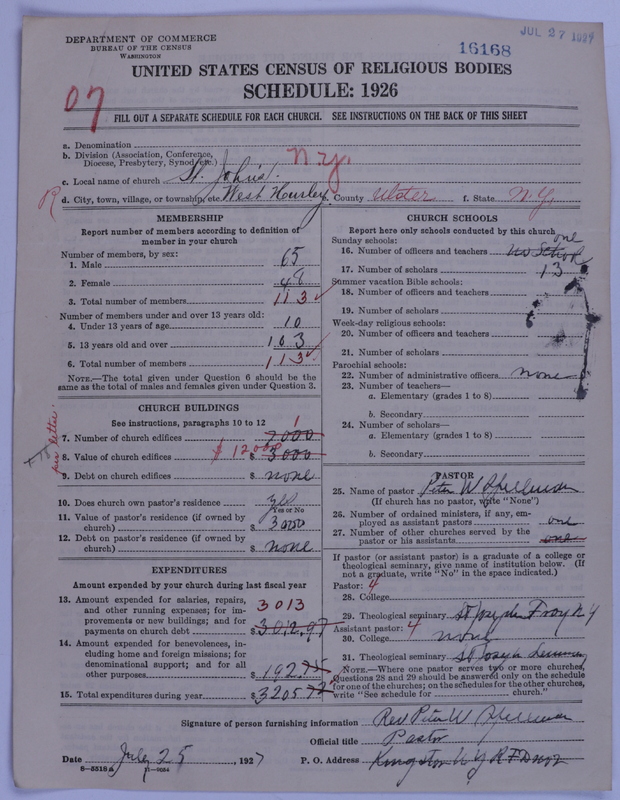 JUL 27 1927
DEPARTMENT OF COMMERCE
BUREAU OF THE CENSUS
WASHINGTON
16168
UNITED STATES CENSUS OF RELIGIOUS BODIES
SCHEDULE: 1926
07
FILL OUT A SEPARATE SCHEDULE FOR EACH CHURCH. SEE INSTRUCTIONS ON THE BACK OF THIS SHEET
a. Denomination
b. Division (Association, Conference, Diocese, Presbytery, Synod, etc.) N.Y.
c. Local name of church St. John's
R d. City, town, village, or township, etc. West Hurley e. County Ulster f. State N.Y.
MEMBERSHIP
Report number of members according to definition of member in your church
Number of members, by sex:
1. Male 65
2. Female 48
3. Total number of members 113 ✓
Number of members under and over 13 years old:
4. Under 13 years of age 10
5. 13 years old and over 103
6. Total number of members 113 ✓
NOTE.—The total given under Question 6 should be the same as the total of males and females given under Question 3.
CHURCH BUILDINGS
See instructions, paragraphs 10 to 12
7. Number of church edifices 1
8. Value of church edifices $12000 $3000
per letter
9. Debt on church edifices $ none
10. Does church own pastor's residence yes
Yes or No
11. Value of pastor's residence (if owned by church) $3000
12. Debt on pastor's residence (if owned by church) $ none
EXPENDITURES
Amount expended by your church during last fiscal year
13. Amount expended for salaries, repairs, and other running expenses; for improvements or new buildings; and for payments on church debt 3013 $3,012.97
14. Amount expended for benevolences, including home and foreign missions; for denominational support; and for all other purposes $192.75
15. Total expenditures during year $3205.72
CHURCH SCHOOLS
Report here only schools conducted by this church
Sunday schools:
16. Number of officers and teachers one no School
17. Number of scholars 13
Summer vacation Bible schools:
18. Number of officers and teachers
19. Number of scholars
Week-day religious schools:
20. Number of officers and teachers
21. Number of scholars
Parochial schools:
22. Number of administrative officers none
23. Number of teachers—
a. Elementary (grades 1 to 8)
b. Secondary
24. Number of scholars—
a. Elementary (grades 1 to 8)
b. Secondary
PASTOR
25. Name of pastor Peter W
(If church has no pastor, write "None")
26. Number of ordained ministers, if any, employed as assistant pastors one
27. Number of other churches served by the pastor or his assistants one
If pastor (or assistant pastor) is a graduate of a college or theological seminary, give name of institution below. (If not a graduate, write "No" in the space indicated.)
Pastor: 4
28. College
29. Theological seminary St Joseph Troy N Y
Assistant pastor: 4
30. College none
31. Theological seminary St Joseph
NOTE.—Where one pastor serves two or more churches, Questions 28 and 29 should be answered only on the schedule for one of the churches; on the schedules for the other churches, write "See schedule for church."
Signature of person furnishing information Rev Peter W
Official title Pastor
Date July 25, 1927 P. O. Address Kingston N Y R F D no 2
8-5518a